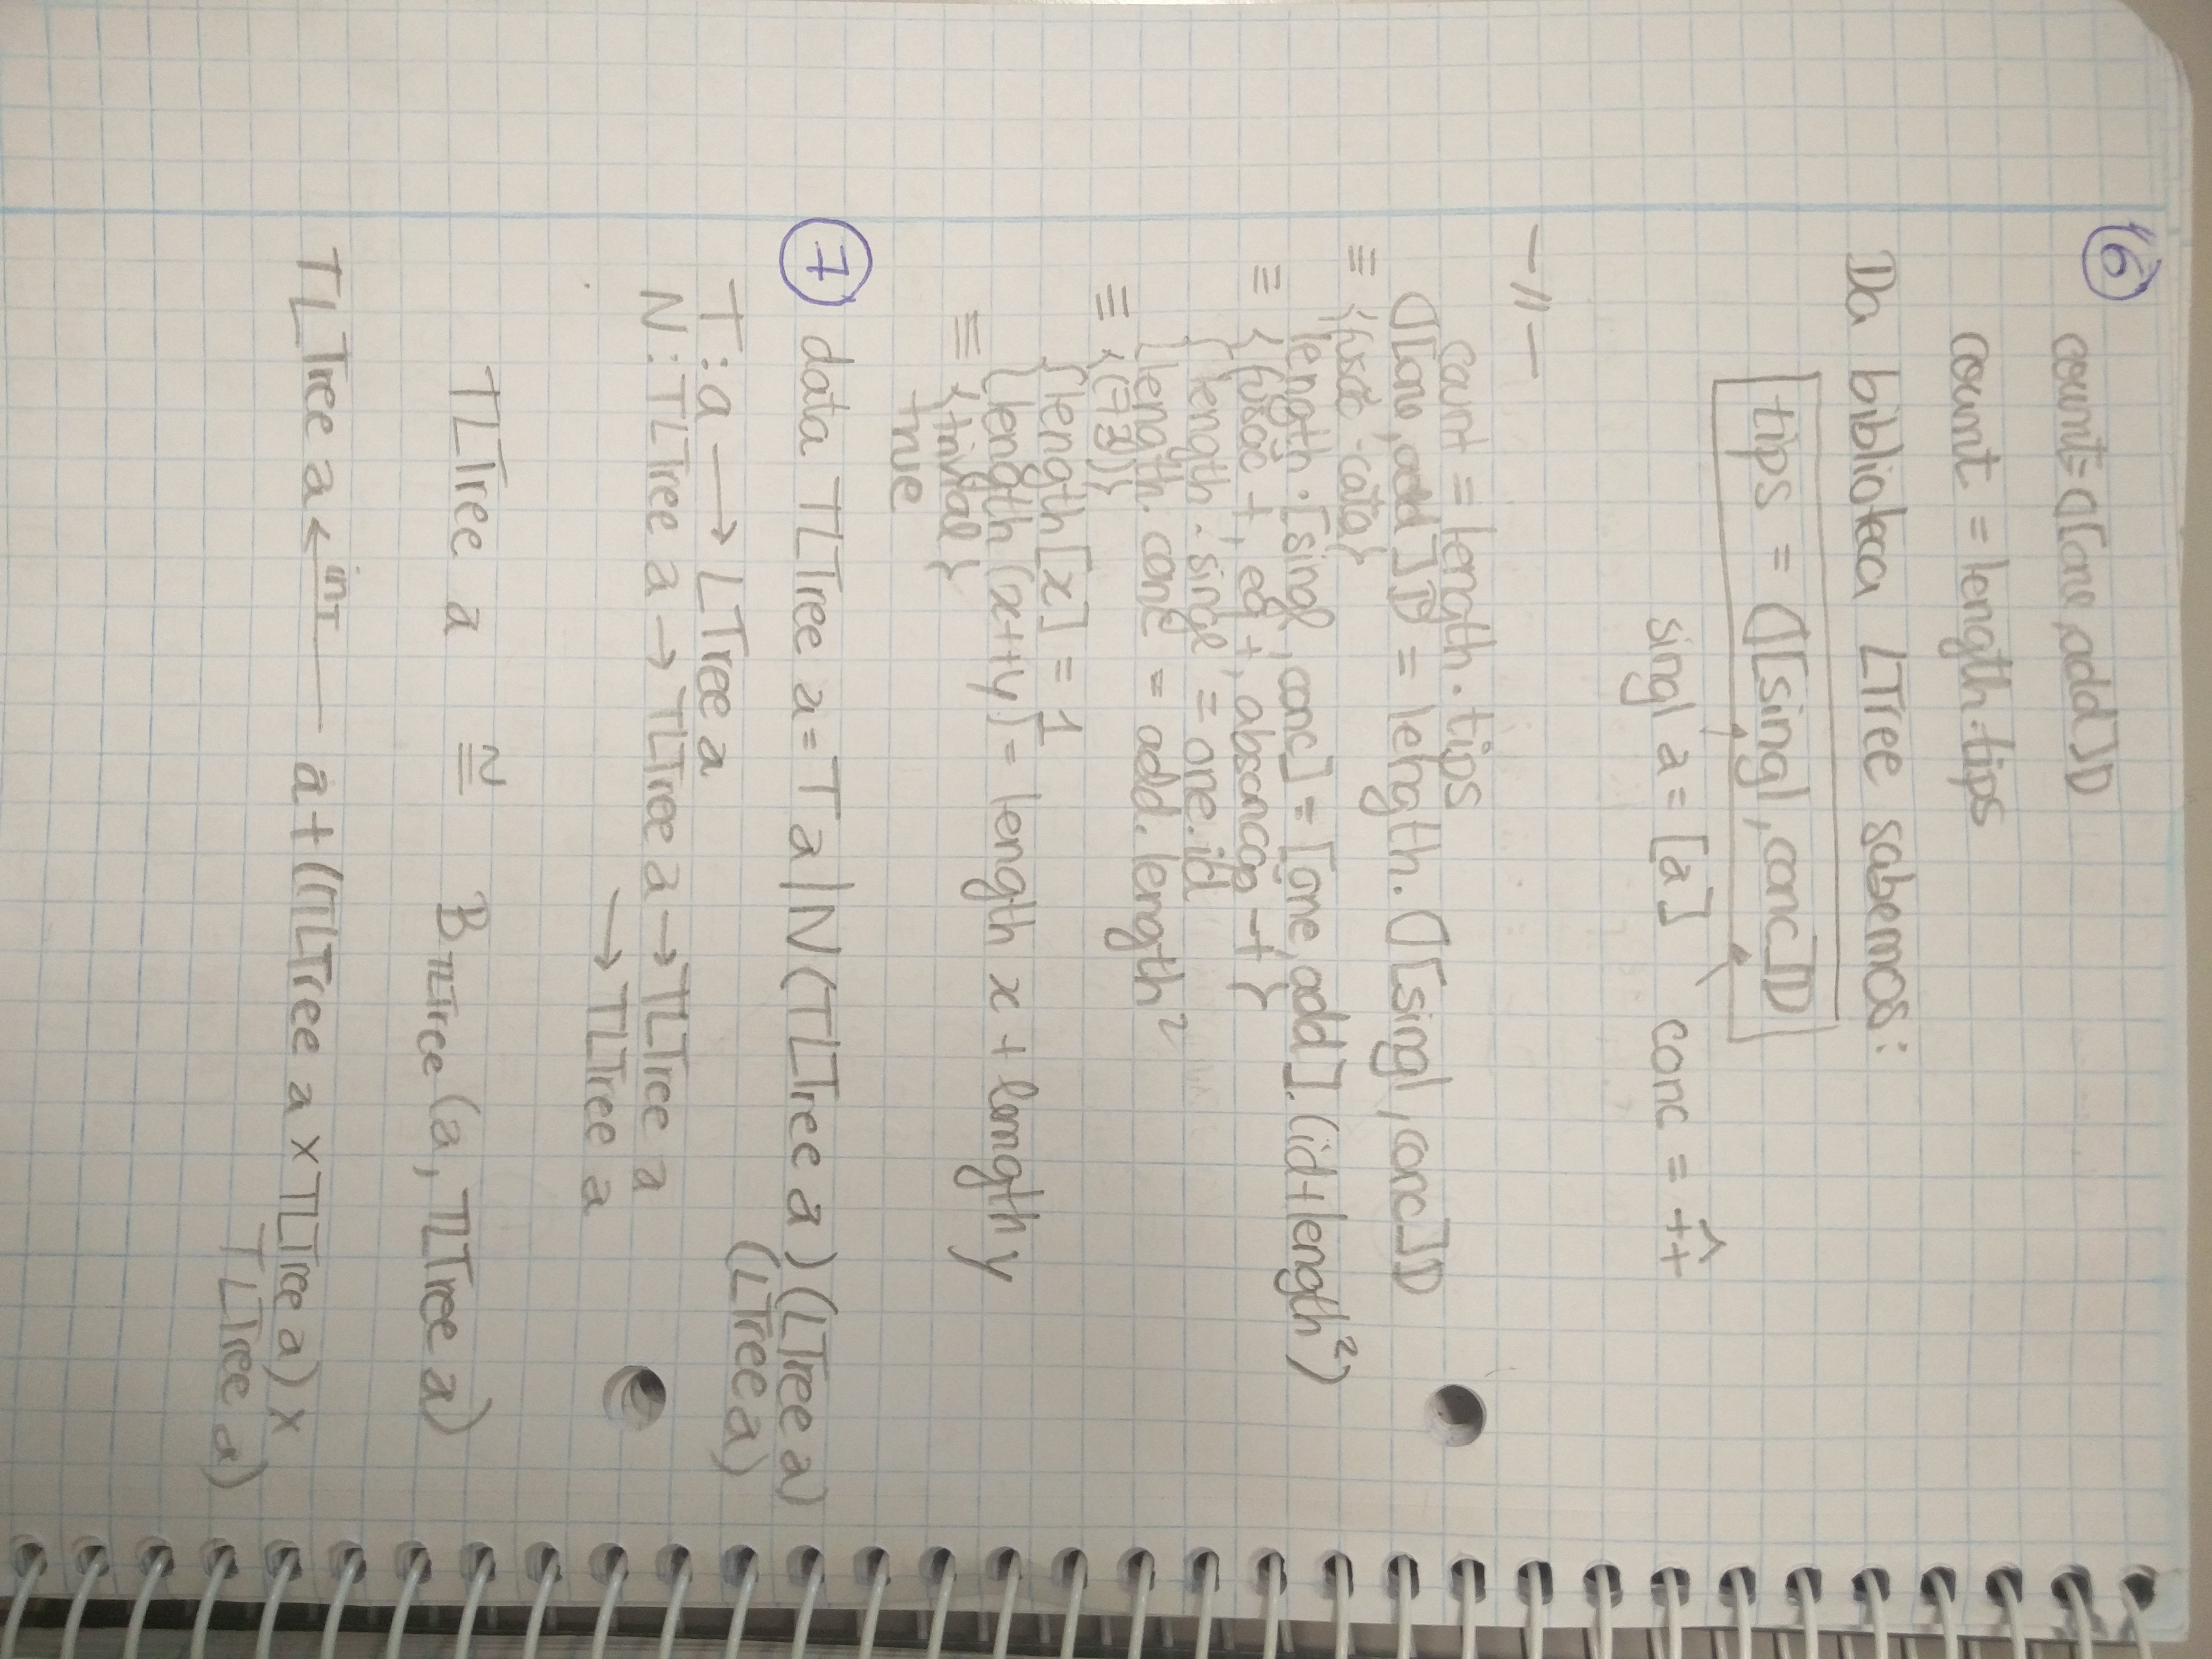 6
count = ⦇[one, add]⦈
count = length.tips
Da biblioteca LTree sabemos:
tips = ⦇[singl, conc]⦈
singl a = [a] conc = ++^
—//—
count = length . tips
⦇[one, add]⦈ = length. ⦇[singl, conc]⦈
≡ {fusão -cata}
length . [singl, conc] = [one, add]. (id+length²)
≡ {fusão +, eq +, absoncão -+}
{ length . singl = one.id
length. conc = add. length²
≡ {(73)}
{ length [x] = 1
length (x++y) = length x + length y
≡ {trivial}
true
7 data TLTree a = T a | N (TLTree a) (LTree a)
(LTree a)
T : a ⟶ LTree a
N : TLTree a → TLTree a → TLTree a
⟶ TLTree a
TLTree a ≅ B TLTree (a, TLTree a)
TLTree a ⟵ inT a + ((TLTree a × TLTree a) ×
TLTree a)